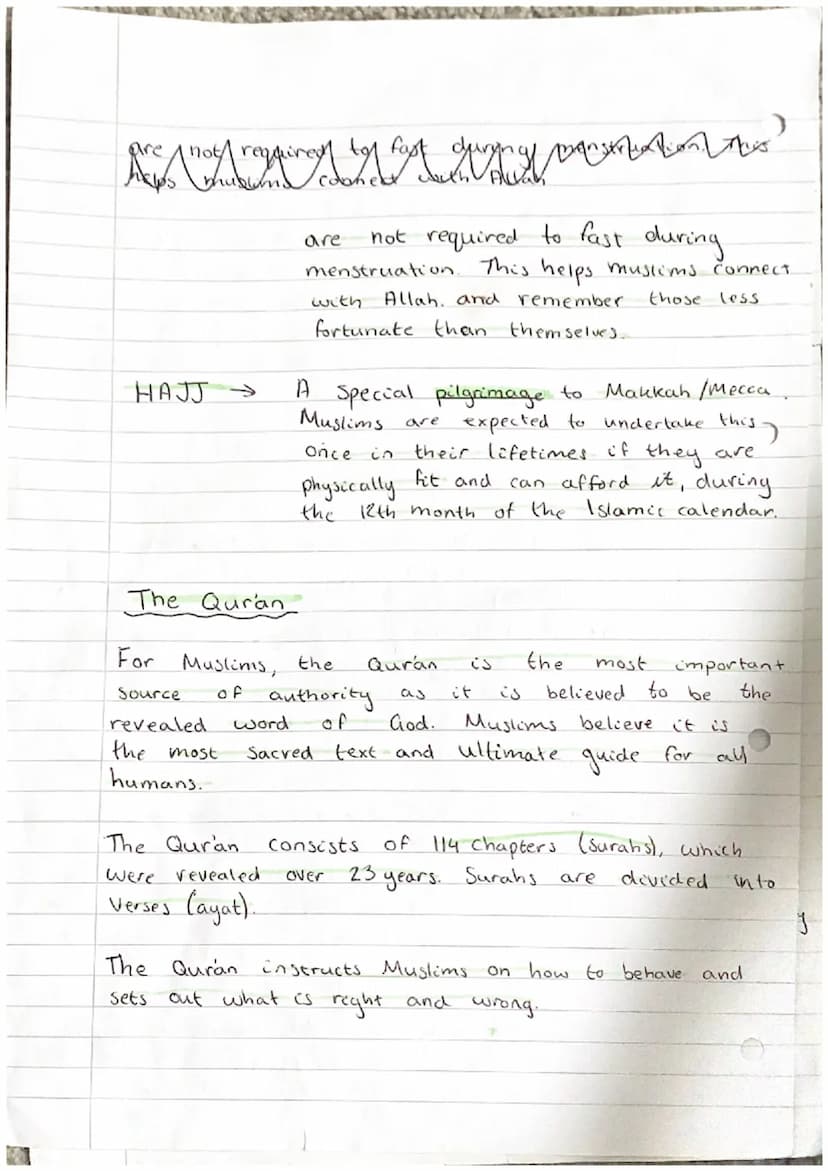 are not required to fast during menstruation. This
helps muslims connect with Allah
are not required to fast during
menstruation. This helps muslims connect
with Allah. and remember those less
fortunate than themselves.
HAJJ → A special pilgrimage to Makkah/Mecca.
Muslims are expected to undertake this
once in their lifetimes if they are
physically fit and can afford it, during
the 12th month of the Islamic calendar.
The Qur'an
For Muslims, the Qur'an is the most important
source of authority as it is believed to be the
revealed word of God. Muslims believe it is
the most sacred text and ultimate guide for all
humans.
The Qur'an consists of 114 chapters (surahs), which
were revealed over 23 years. Surahs are divided into
verses (ayat).
The Qur'an instructs Muslims on how to behave and
sets out what is right and wrong.